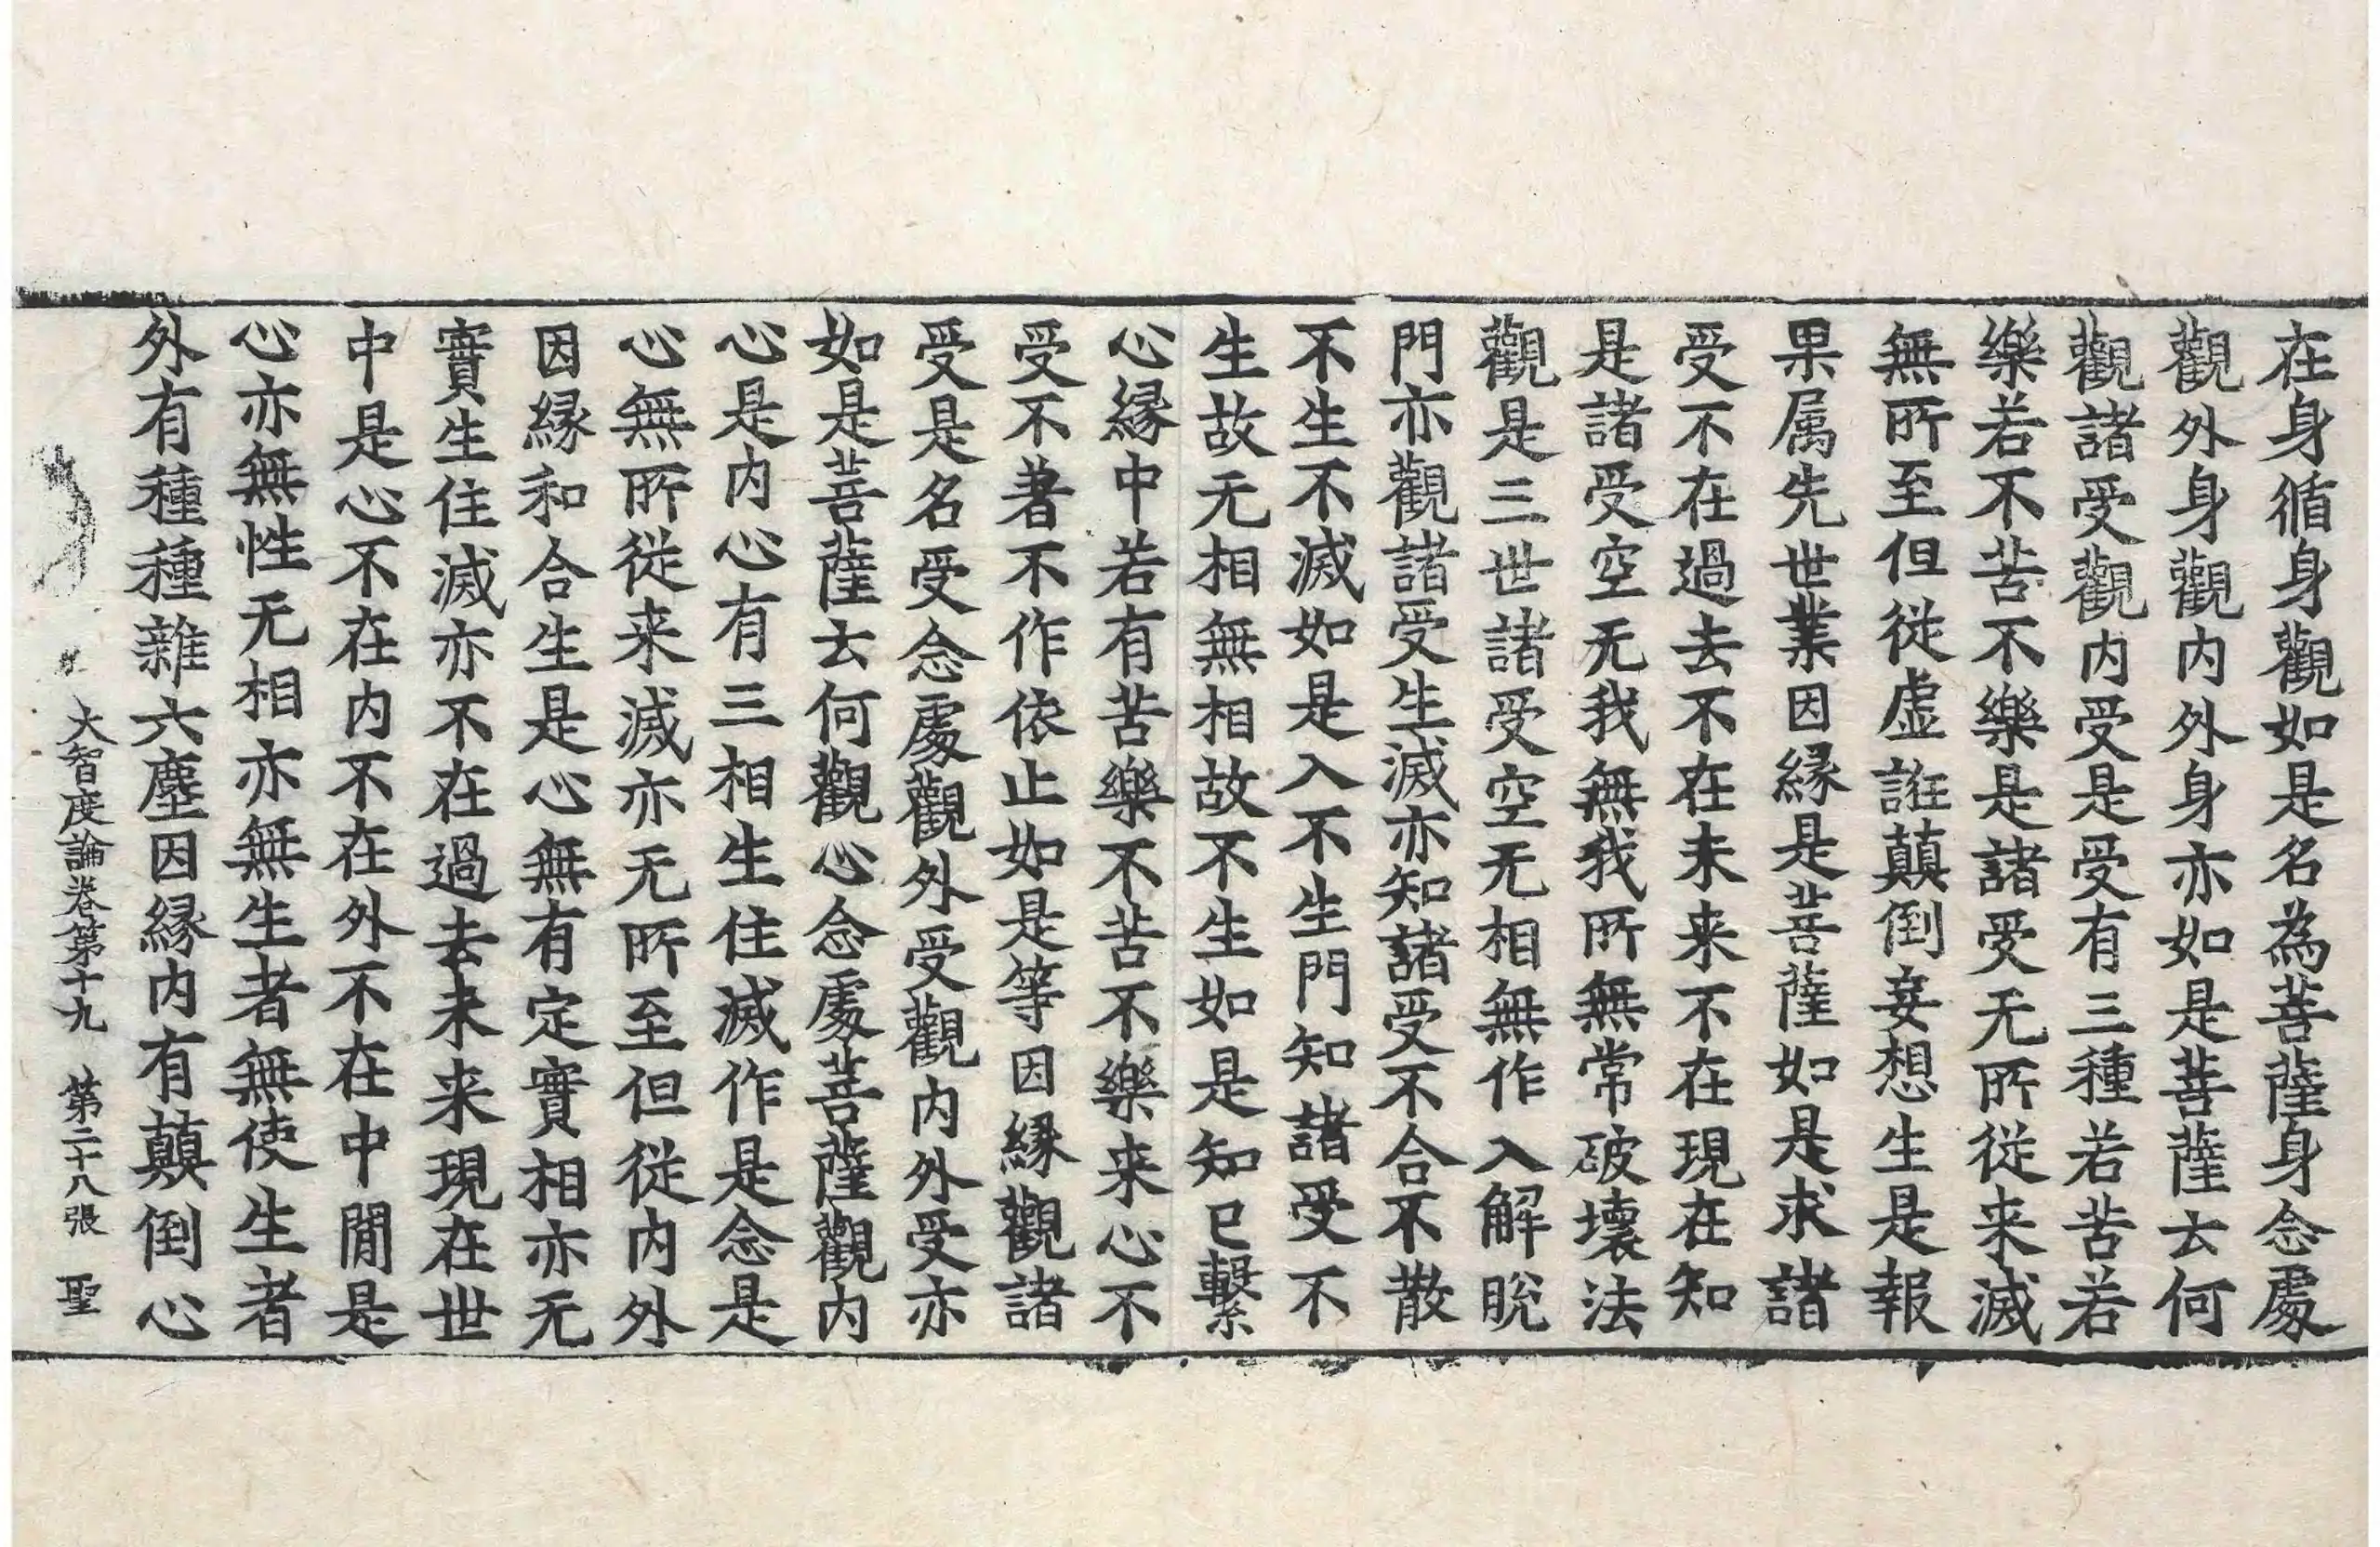 在身循身觀如是名為菩薩身念處
觀外身觀內外身亦如是菩薩云何
觀諸受觀內受是受有三種若苦若
樂若不苦不樂是諸受无所從来滅
無所至但從虛誑顛倒妄想生是報
果属先世業因緣是菩薩如是求諸
受不在過去不在未来不在現在知
是諸受空无我無我所無常破壞法
觀是三世諸受空无相無作入解脫
門亦觀諸受生滅亦知諸受不合不散
不生不滅如是入不生門知諸受不
生故无相無相故不生如是知已繫
心緣中若有苦樂不苦不樂来心不
受不著不作依止如是等因緣觀諸
受是名受念處觀外受觀內外受亦
如是菩薩云何觀心念處菩薩觀內
心是內心有三相生住滅作是念是
心無所從来滅亦无所至但從內外
因緣和合生是心無有定實相亦无
實生住滅亦不在過去未来現在世
中是心不在內不在外不在中閒是
心亦無性无相亦無生者無使生者
外有種種雜六塵因緣內有顛倒心
大智度論卷第十九 第二十八張 聖